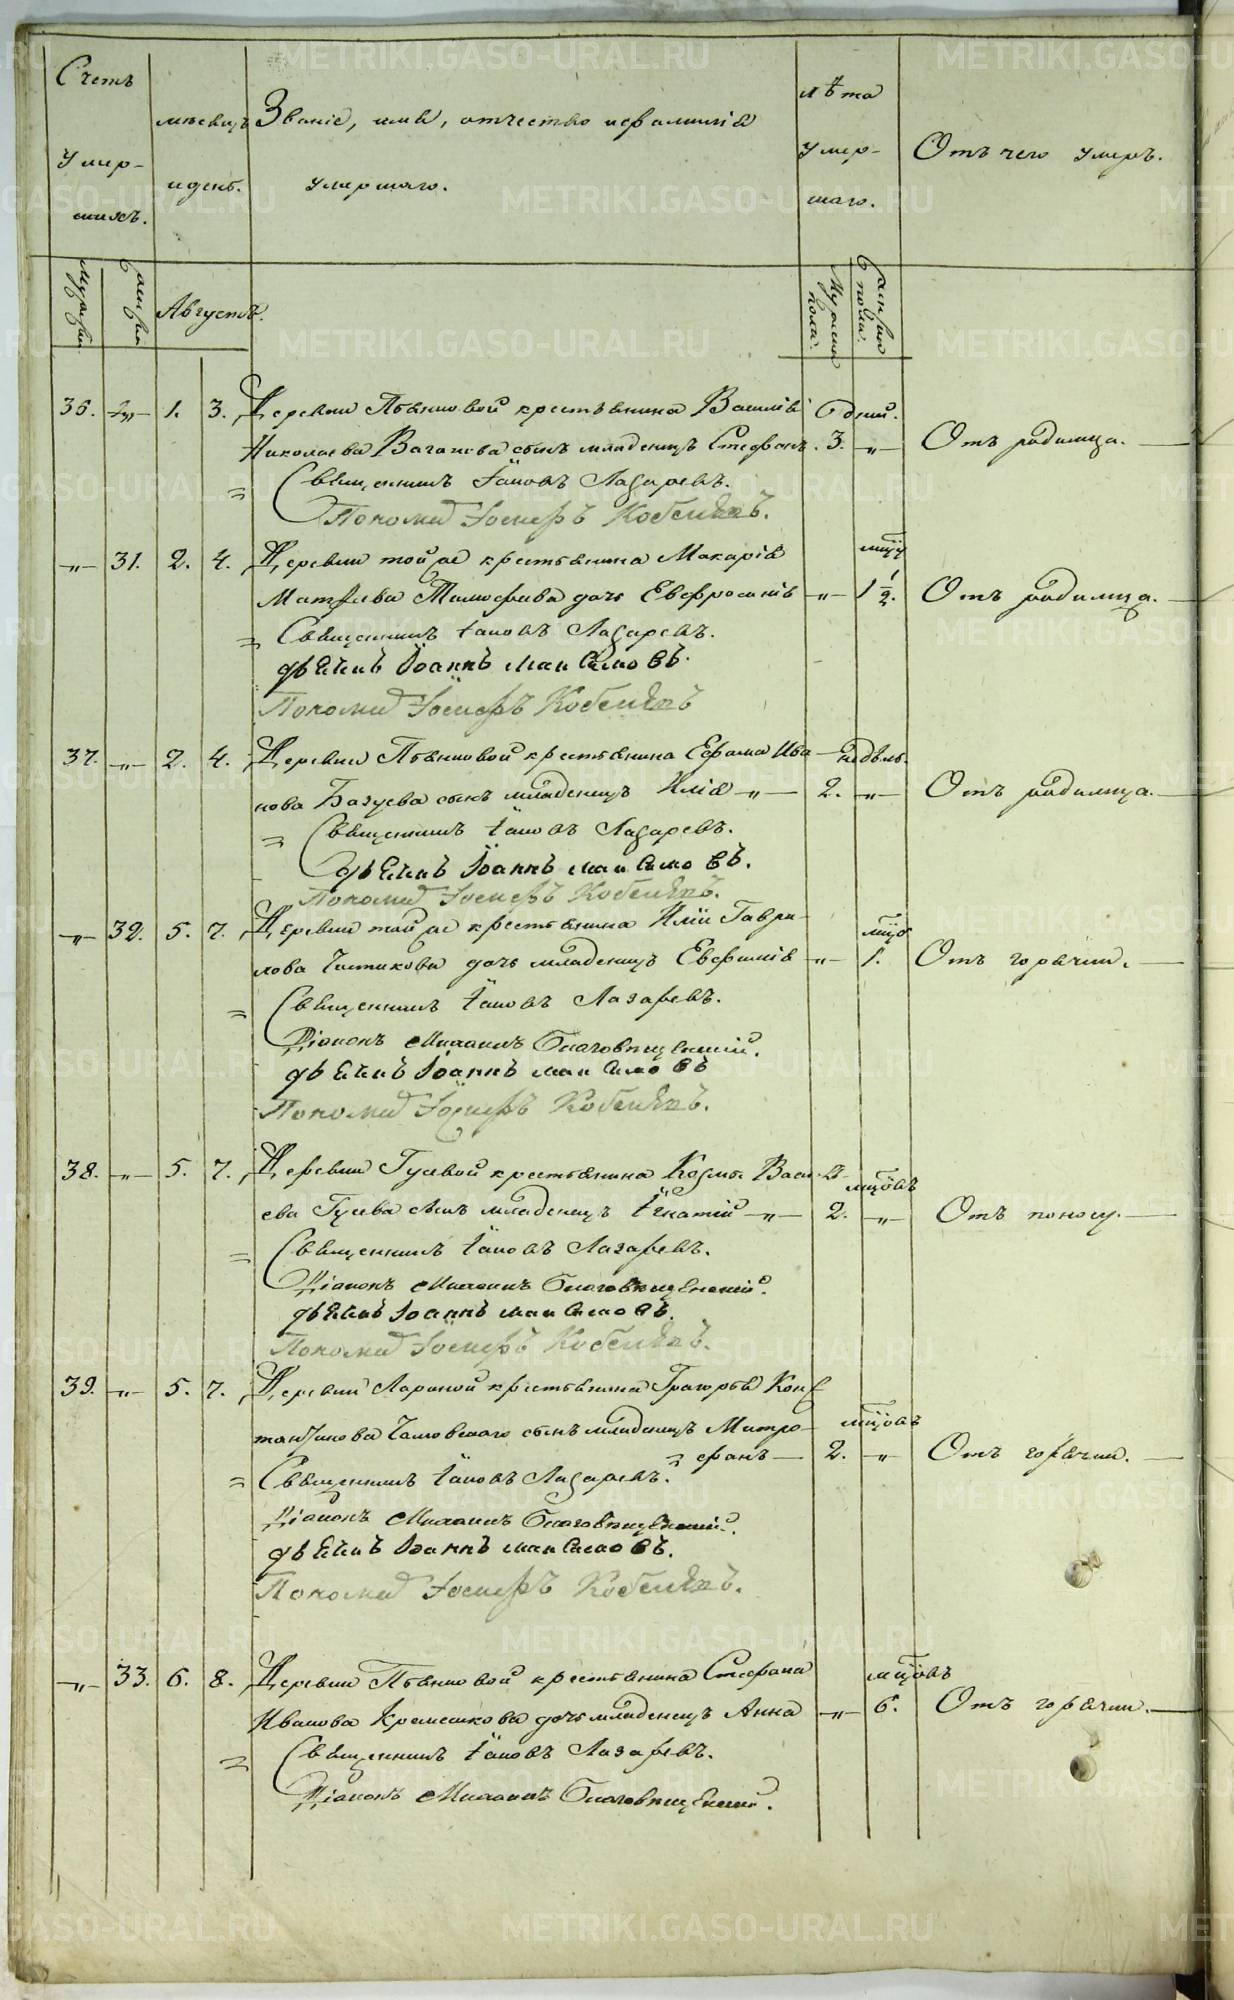 Счетъ
умер-
шихъ.
мѣсяцъ
и день.
Званіе, имя, отчество и фамилія
умершаго.
лѣта
умер-
шаго.
Отъ чего умеръ.
Мужеска
Женска
Августъ.
Мужеска
пола.
Женска
пола.
36. —„— 1. 3. Деревни Пьянковой крестьянина Василія 6 дней.
Николаева Ваганова сынъ младенецъ Стефанъ. 3. —„— Отъ родимца.
Священникъ Іаковъ Лазаревъ.
Пономар Іосифъ
—„— 31. 2. 4. Деревни той же крестьянина Макарія мцъ
Матфѣева Тимофеева дочь Евфросинія —„— 1 1/2. Отъ родимца.
Священникъ Іаковъ Лазаревъ.
дьячекъ Іоаннъ
Пономар Іосифъ
37. —„— 2. 4. Деревни Пьянковой крестьянина Ефрема Ива- недѣль.
нова сынъ младенецъ Илія —„— 2. —„— Отъ родимца.
Священникъ Іаковъ Лазаревъ.
дьячекъ Іоаннъ
Пономар Іосифъ
—„— 32. 5. 7. Деревни той же крестьянина Иліи Гаври- мцъ
лова Чистикова дочь младенецъ Евфимія —„— 1. Отъ горячки.
Священникъ Іаковъ Лазаревъ.
Діаконъ Михаилъ Благовѣщенскій.
дьячекъ Іоаннъ
Пономар Іосифъ
38. —„— 5. 7. Деревни Гуевой крестьянина Козмы Васи- мцовъ
ева Гуева сынъ младенецъ Игнатій —„— 2. —„— Отъ поносу.
Священникъ Іаковъ Лазаревъ.
Діаконъ Михаилъ Благовѣщенскій.
дьячекъ Іоаннъ
Пономар Іосифъ
39. —„— 5. 7. Деревни Лариной крестьянина Григорья Конс-
тантинова сынъ младенецъ Митро- мцовъ
фанъ — 2. —„— Отъ горячки.
Священникъ Іаковъ Лазаревъ.
Діаконъ Михаилъ Благовѣщенскій.
дьячекъ Іоаннъ
Пономар Іосифъ
—„— 33. 6. 8. Деревни Пьянковой крестьянина Стефана мцовъ
Иванова Кремешкова дочь младенецъ Анна —„— 6. Отъ горячки.
Священникъ Іаковъ Лазаревъ.
Діаконъ Михаилъ Благовѣщенскій.
METRIKI.GASO-URAL.RU